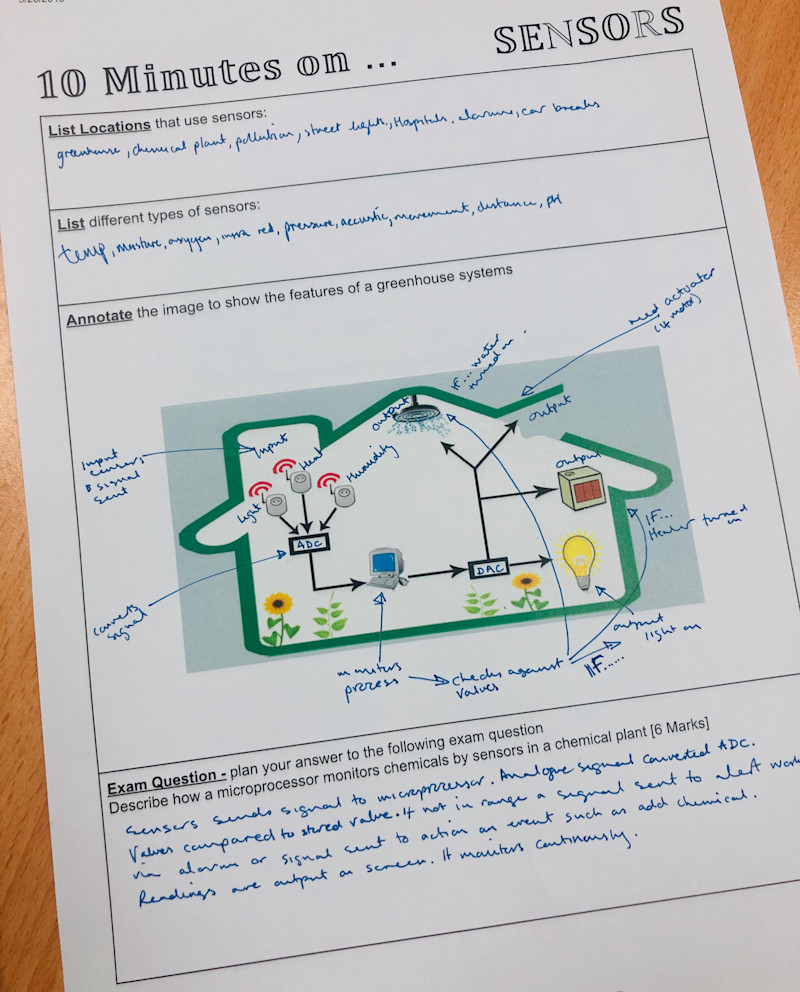 10 Minutes on ... SENSORS
List Locations that use sensors:
greenhouse, chemical plant, pollution, street lights, Hospitals, alarms, car breaks
List different types of sensors:
temp, moisture, oxygen, infra red, pressure, accustic, movement, distance, pH
Annotate the image to show the features of a greenhouse systems
need actuator
(14 motor)
IF... water
turned on.
output
output
Input
sensers
signal
sent
Input
Heat
Humidity
Light
output
ADC
DAC
IF...
Heater turned
on
converts
signal
output
light on
monitors
process
checks against
values
IF......
Exam Question - plan your answer to the following exam question
Describe how a microprocessor monitors chemicals by sensors in a chemical plant [6 Marks]
Sensors sends signal to microprocessor. Analogue signal converted ADC.
Values compared to stored value. If not in range a signal sent to alert
via alarm or signal sent to action an event such as add chemical.
Readings are output on screen. It monitors continously.